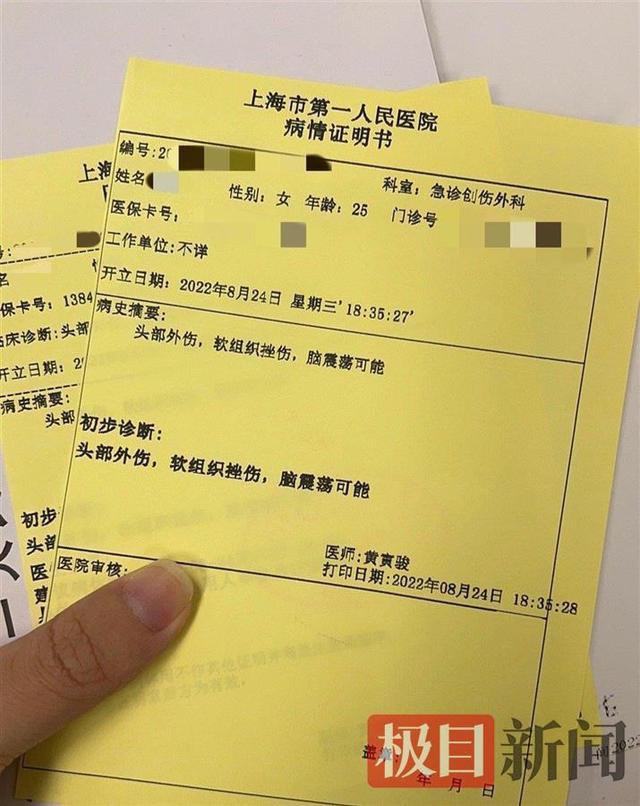 上海市第一人民医院
病情证明书
编号:2
姓名
性别: 女 年龄: 25
科室: 急诊创伤外科
医保卡号:
门诊号
工作单位:不详
开立日期: 2022年8月24日 星期三'18:35:27'
病史摘要:
头部外伤, 软组织挫伤, 脑震荡可能
初步诊断:
头部外伤, 软组织挫伤, 脑震荡可能
医师:黄寅骏
医院审核:
打印日期:2022年08月24日 18:35:28
盖章
年 月 日
上海
保卡号: 1384
临床诊断:头部
开立日期: 2
病史摘要:
头部
初步
头部
医
建
极目新闻